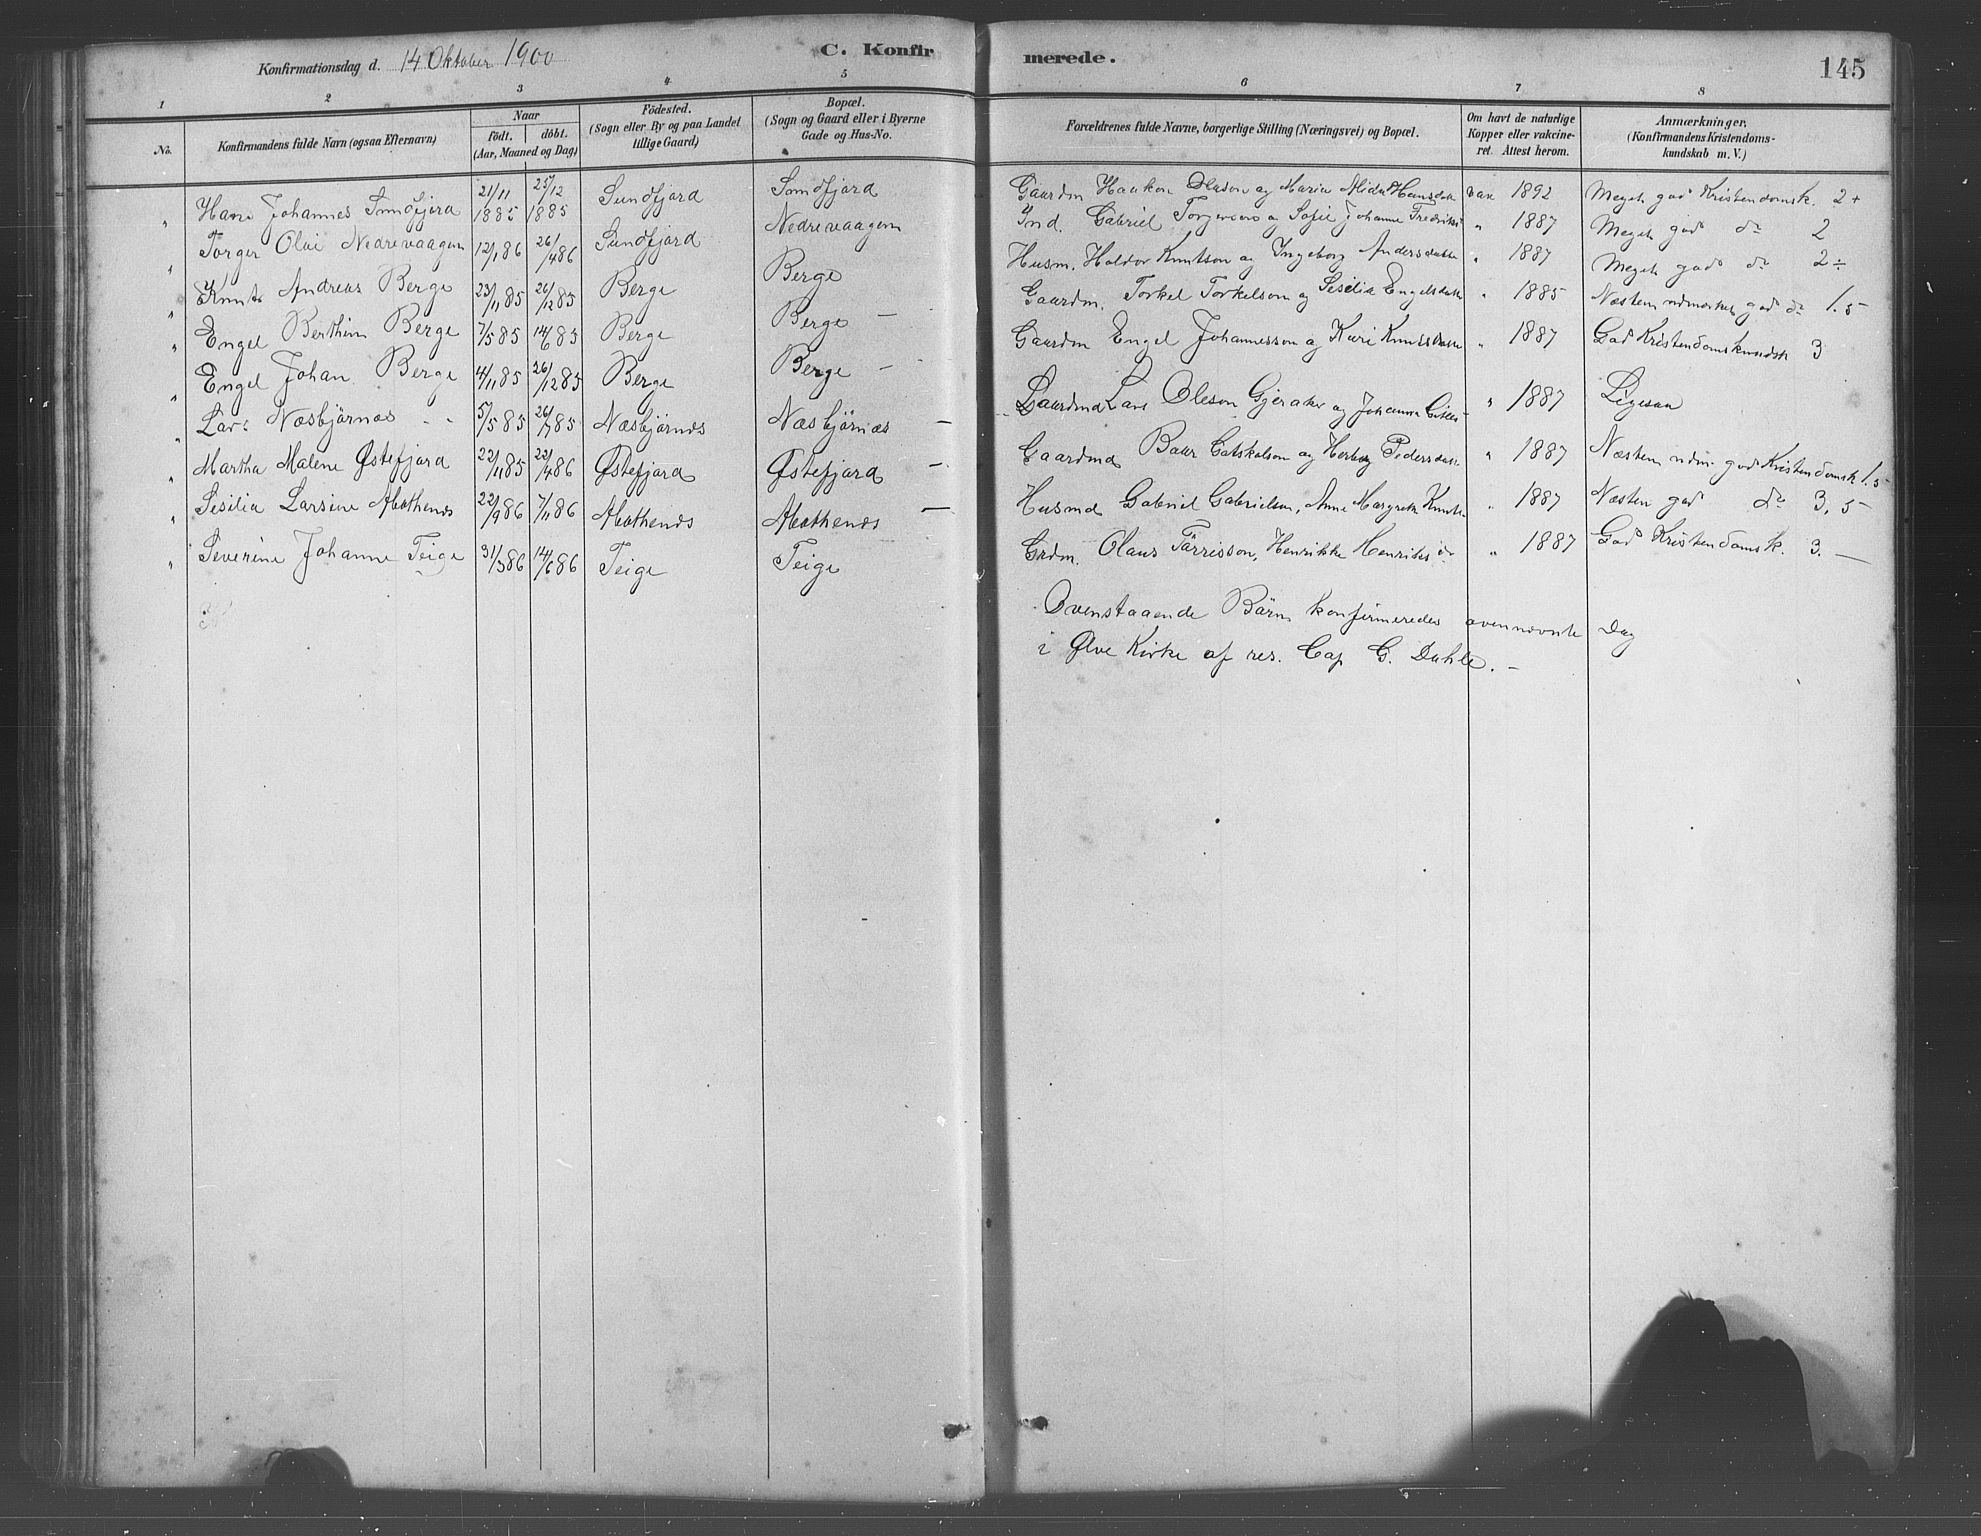 Konfirmationsdag d. 14 Oktober 1900
C. Konfirmerede.
145
1 2 3 4 5 6 7 8
No.
Konfirmandens fulde Navn (ogsaa Efternavn)
Naar
födt. döbt.
(Aar, Maaned og Dag)
Födested.
(Sogn eller By og paa Landet
tillige Gaard)
Bopæl.
(Sogn og Gaard eller i Byerne
Gade og Hus-No.
Forældrenes fulde Navne, borgerlige Stilling (Næringsvei) og Bopæl.
Om havt de naturlige
Kopper eller vakcine-
ret. Attest herom.
Anmærkninger,
(Konfirmandens Kristendoms-
kundskab m. V.)
" Hans Johannes Sundfjord 21/11 1885 25/12 1885 Sundfjord Sundfjord Gaardm Haakon Olason og Maria Hansdat vax 1892 Meget god Kristendomsk. 2+
" Torger Olai Nedrevaagen 12/1 86 26/4 86 Sundfjord Nedrevaagen Ind. Gabriel og Sofie Johanne Fredriks " 1887 Meget god do 2
" Knut Andreas Berge 23/11 85 26/12 85 Berge Berge Husm. Haldor Knutson og Ingeborg Andersdatt " 1887 Meget god do 2÷
" Engel Berthin Berge 7/5 85 14/6 85 Berge Berge – Gaardm. Torkel Torkelson og Sesilia Engelsdatt " 1885 Næsten udmærket god do 1.5
" Engel Johan Berge 4/11 85 26/12 85 Berge Berge – Gaardm Engel Johannesson og Kari Knutsdatt " 1887 God Kristendomskundsk 3
" Lars Næsbjörnæs 5/5 85 26/7 85 Næsbjörnæs Næsbjörnæs – Gaardmd Lars Oleson Gjeraker og Johanna " 1887 Ligesaa
" Martha Malene Østefjord 22/11 85 22/4 86 Østefjord Østefjord – Gaardmd Baar Gatskalson og Herborg Pedersdatt " 1887 Næsten udm. god Kristendomsk 1.5
" Sesilia Larsine 22/9 86 7/11 86 – Husmd Gabriel Gabrielson, Anne Margrete Knuts " 1887 Næsten god do 3,5
" Severine Johanne Teige 31/3 86 14/6 86 Teige Teige Grdm. Olaus Tärrisson, Henrikke Henriksd " 1887 God Kristendomsk. 3. –
Ovenstaaende Bärn konfirmeredes ovennævnte Dag
i Ølve Kirke af res. Cap G. Dahle. –